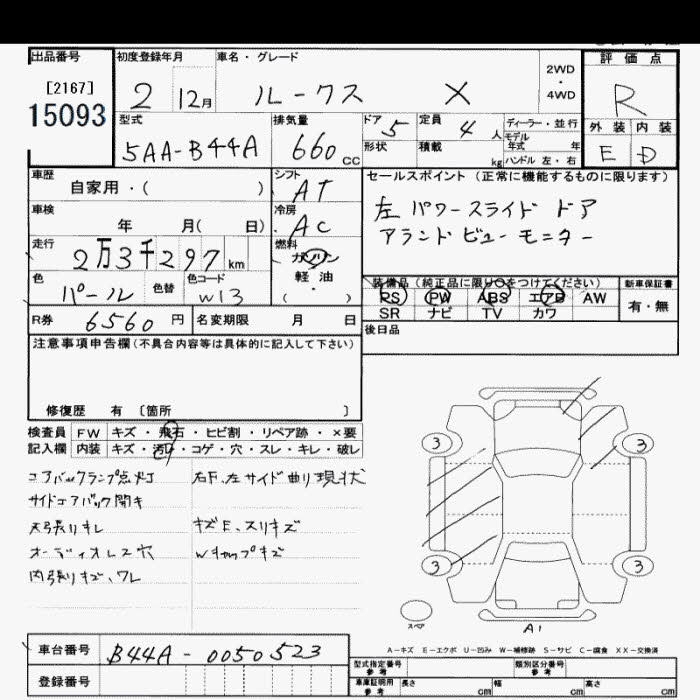 出品番号
[2167]
15093
初度登録年月
2 12月
車名・グレード
ルークス X
2WD
・
4WD
評価点
R
外装 内装
E D
型式
5AA-B44A
排気量
660 CC
ドア 5
形状
定員 4 人
積載 kg
ディーラー・並行
モデル
年式 年
ハンドル 左・右
車歴
自家用・( )
シフト
AT
車検
年 月( 日)
冷房
AC
走行
2万3千297 km
燃料
ガソリン
軽・油
( )
色
パール
色替
色コード
W13
セールスポイント (正常に機能するものに限ります)
左 パワースライド ドア
アランド ビュー モニター
装備品 (純正品に限り○をつけてください)
PS PW ABS エアB AW
SR ナビ TV カワ
新車保証書
有・無
R券 6560 円
名変期限 月 日
後日品
注意事項申告欄(不具合内容等は具体的に記入して下さい)
修復歴 有 〔箇所 〕
検査員 FW キズ・飛石・ヒビ割・リペア跡・×要
記入欄 内装 キズ・汚レ・コゲ・穴・スレ・キレ・破レ
エアバックランプ点灯
サイドエアバック開キ
天張りキレ
オーディオレス穴
内張りキズ、ワレ
右F、左サイド曲り現状
キズE、スリキズ
Wキャップキズ
3 3
3 3
スペア
A1
A-キズ E-エクボ U-凹み W-補修跡 S-サビ C-腐食 XX-交換済
車台番号
B44A-0050523
登録番号
型式指定番号
参考
類別区分番号
参考
車庫証明用
参考
長さ cm
幅 cm
高さ cm